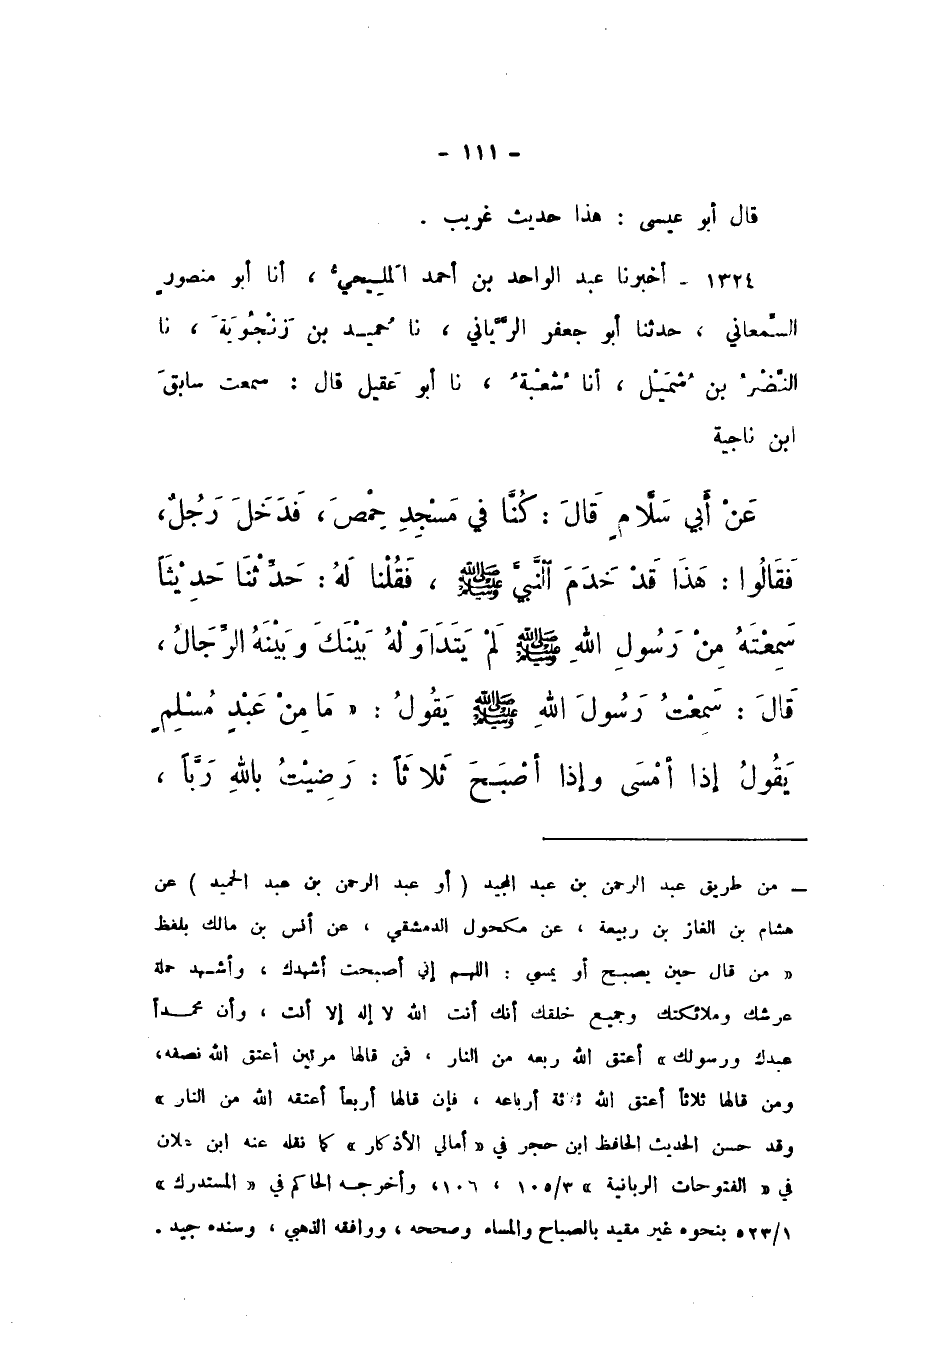 - ١١١ -
قال أبو عيسى : هذا حديث غريب .
١٣٢٤ - أخبرنا عبد الواحد بن أحمد المَلِيحيُّ ، أنا أبو منصورٍ
السَّمعاني ، حدثنا أبو جعفر الرَّيَّاني ، نا حُميد بن زَنْجُويَةَ ، نا
النَّضْرُ بن شُمَيْل ، أنا شُعْبَةُ ، نا أبو عَقيل قال : سمعت سابقَ
ابن ناجية
عَنْ أَبي سَلَّامٍ قَالَ : كُنَّا في مَسْجِدِ حِمْصَ ، فَدَخَلَ رَجُلٌ،
فَقَالُوا : هَذَا قَدْ خَدَمَ ٱلنَّبيَّ ﷺ ، فَقُلْنا لَهُ : حَدِّثْنَا حَدِيْثاً
سَمِعْتَهُ مِنْ رَسُولِ اللهِ ﷺ لَمْ يَتَدَاوَلْهُ بَيْنَكَ وَبَيْنَهُ الرِّجَالُ ،
قَالَ : سَمِعْتُ رَسُولَ اللهِ ﷺ يَقُولُ : « مَا مِنْ عَبْدٍ مُسْلِمٍ
يَقُولُ إذا أمْسَى وإذا أصْبَحَ ثَلاثاً : رَضِيْتُ بِاللهِ رَبَّاً ،
ــ من طريق عبد الرحمن بن عبد المجيد ( أو عبد الرحمن بن عبد الحميد ) عن
هشام بن الغاز بن ربيعة ، عن مكحول الدمشقي ، عن أنس بن مالك بلفظ
« من قال حين يصبح أو يمسي : اللهم إني أصبحت أشهدك ، وأشهد حملة
عرشك وملائكتك وجميع خلقك أنك أنت الله لا إله إلا أنت ، وأن محمداً
عبدك ورسولك » أعتق الله ربعه من النار ، فمن قالها مرتين أعتق الله نصفه،
ومن قالها ثلاثاً أعتق الله ثلاثة أرباعه ، فإن قالها أربعاً أعتقه الله من النار »
وقد حسن الحديث الحافظ ابن حجر في « أمالي الأذكار » كما نقله عنه ابن علان
في « الفتوحات الربانية » ١٠٥/٣ ، ١٠٦، وأخرجه الحاكم في « المستدرك »
٥٢٣/١ بنحوه غير مقيد بالصباح والمساء وصححه ، ووافقه الذهبي ، وسنده جيد .